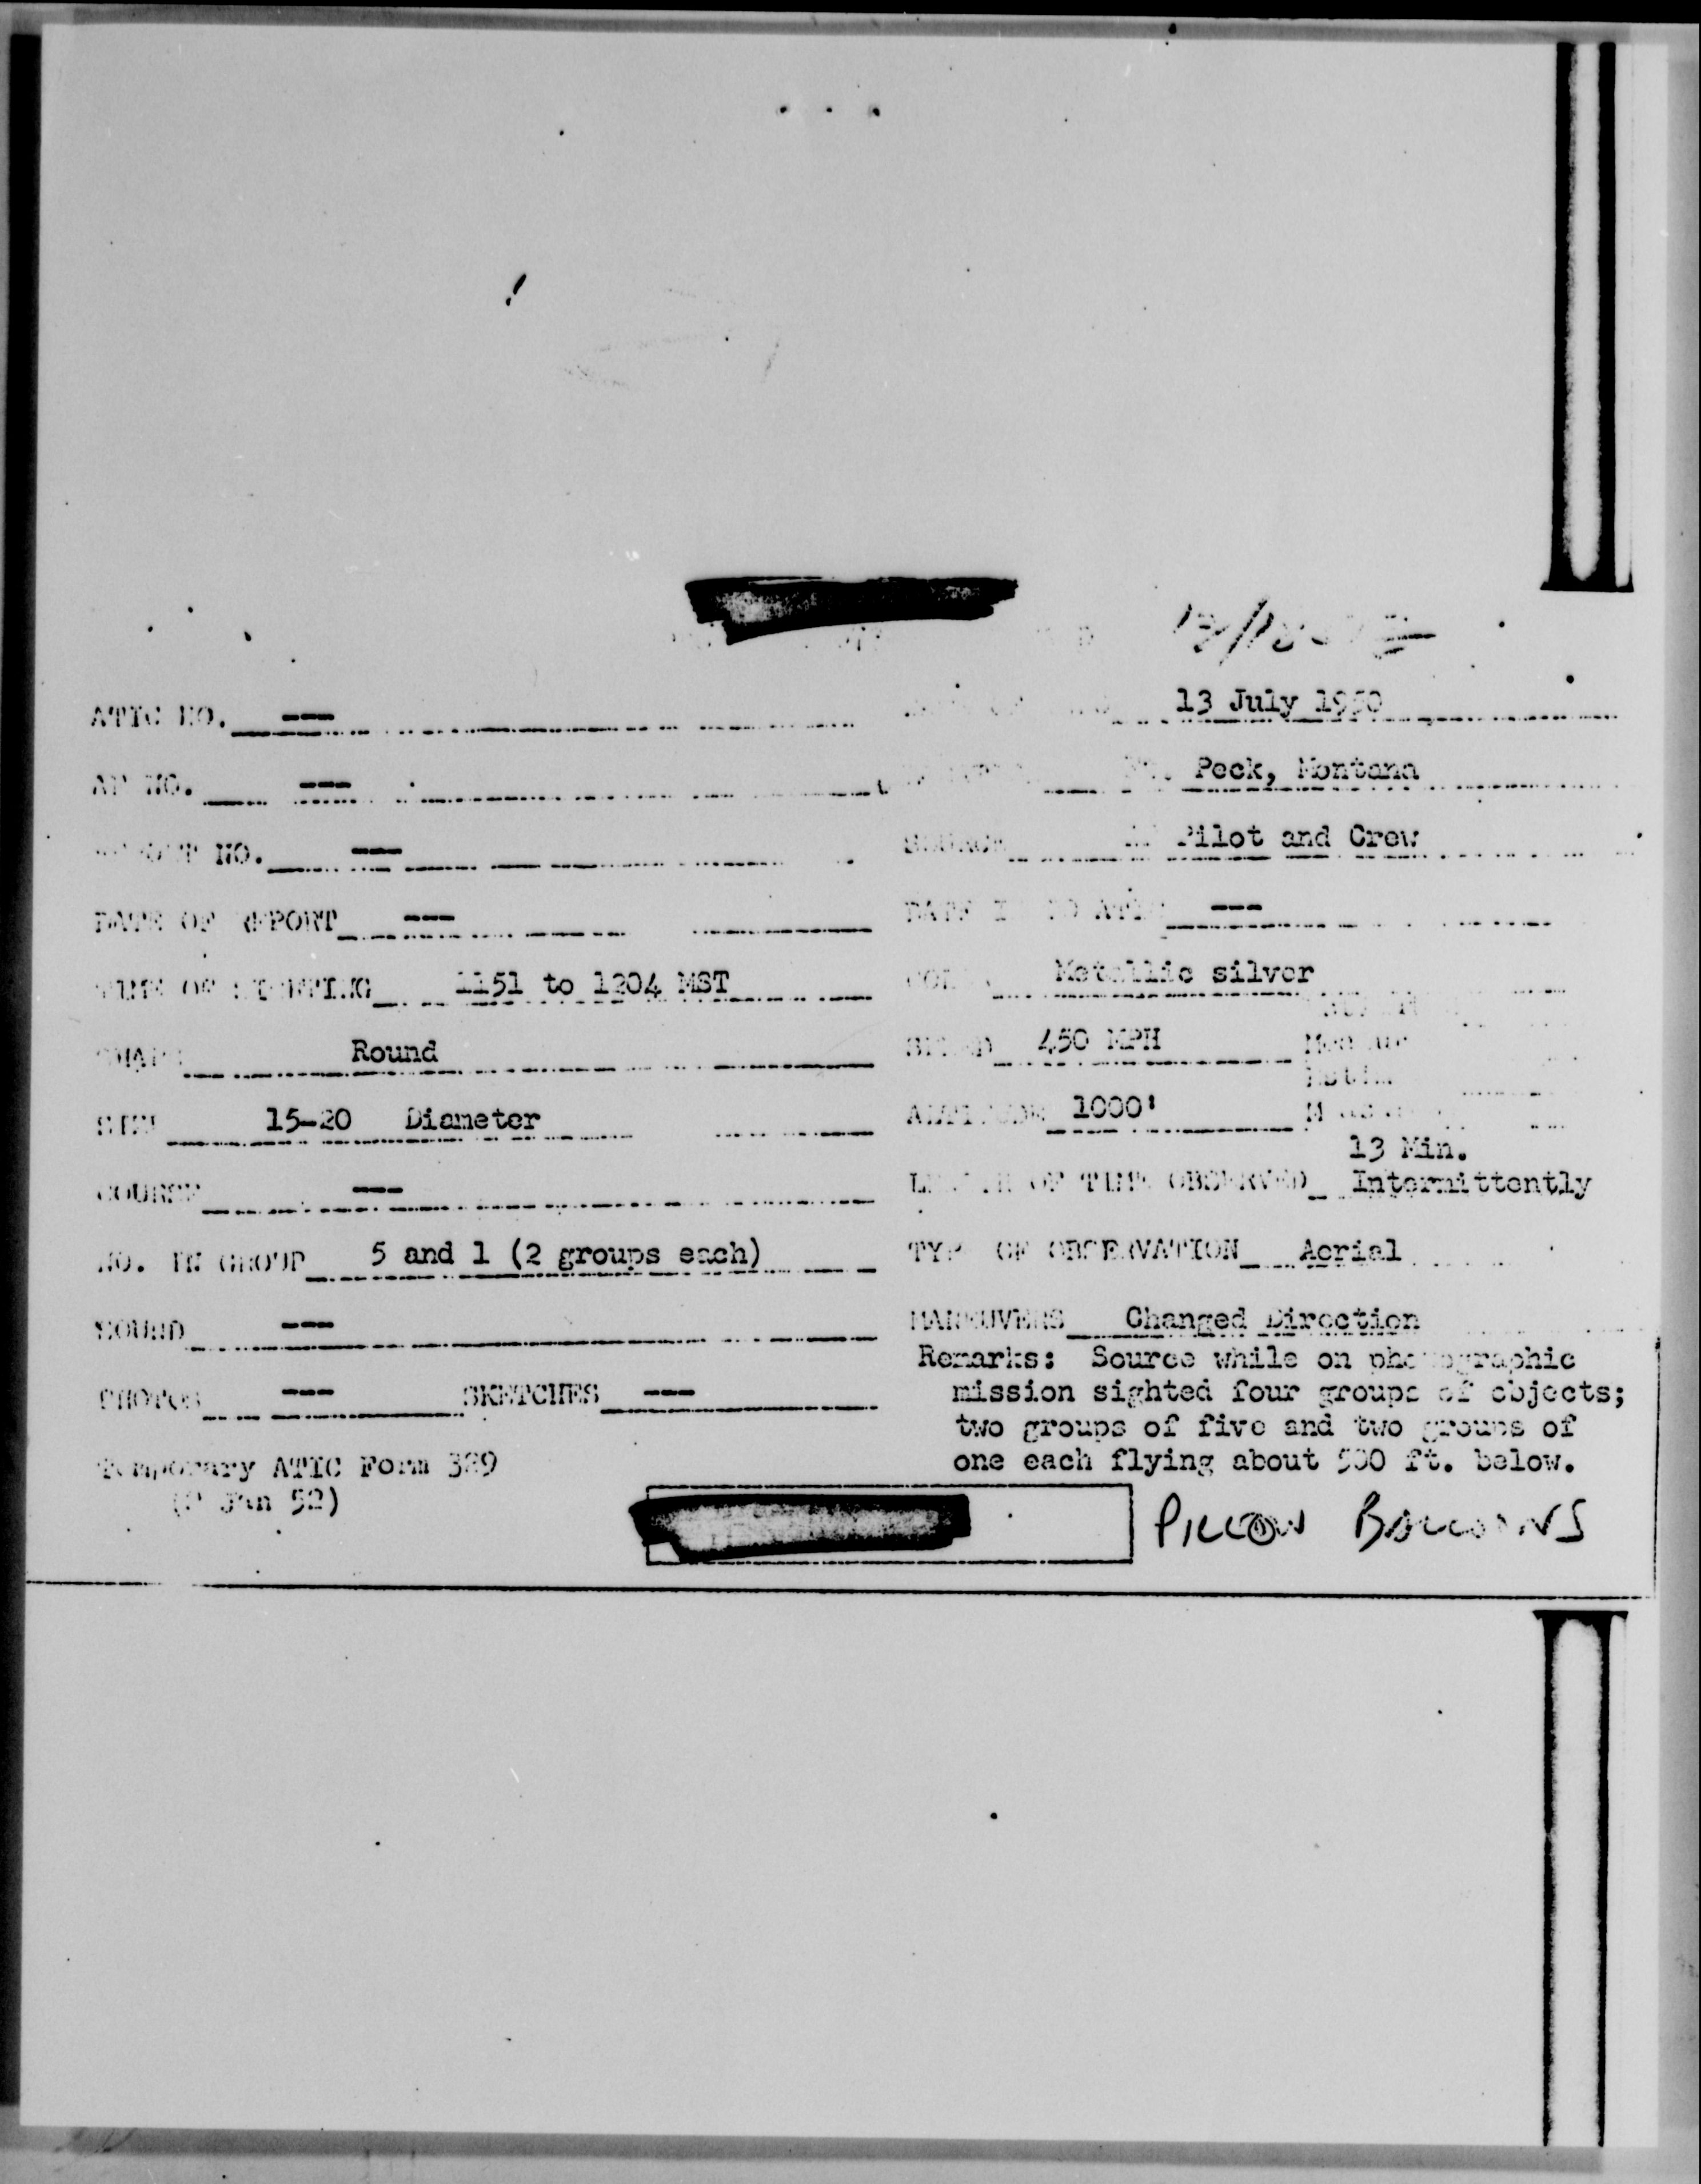 ATIC NO. ---
13 July 1950
AF NO. ---
Peck, Montana
NO. ---
SOURCE Pilot and Crew
DATE OF REPORT ---
DATE ---
TIME OF SIGHTING 1151 to 1204 MST
COLOR Metallic silver
SHAPE Round
SPEED 450 MPH
SIZE 15-20 Diameter
ALTITUDE 1000'
13 Min.
COURSE ---
LENGTH OF TIME OBSERVED Intermittently
NO. IN GROUP 5 and 1 (2 groups each)
TYPE OF OBSERVATION Aerial
SOUND ---
MANEUVERS Changed Direction
Remarks: Source while on photographic
PHOTOS --- SKETCHES ---
mission sighted four groups of objects;
two groups of five and two groups of
one each flying about 500 ft. below.
Temporary ATIC Form 329
Jan 52)
PILLOW BALLOONS